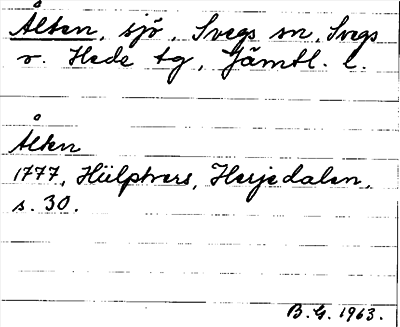 Ålten, sjö, Svegs sn, Svegs
o. Hede tg, Jämtl. l.
Ålten
1777, Hülphers, Herjedalen,
s. 30.
B. G. 1963.